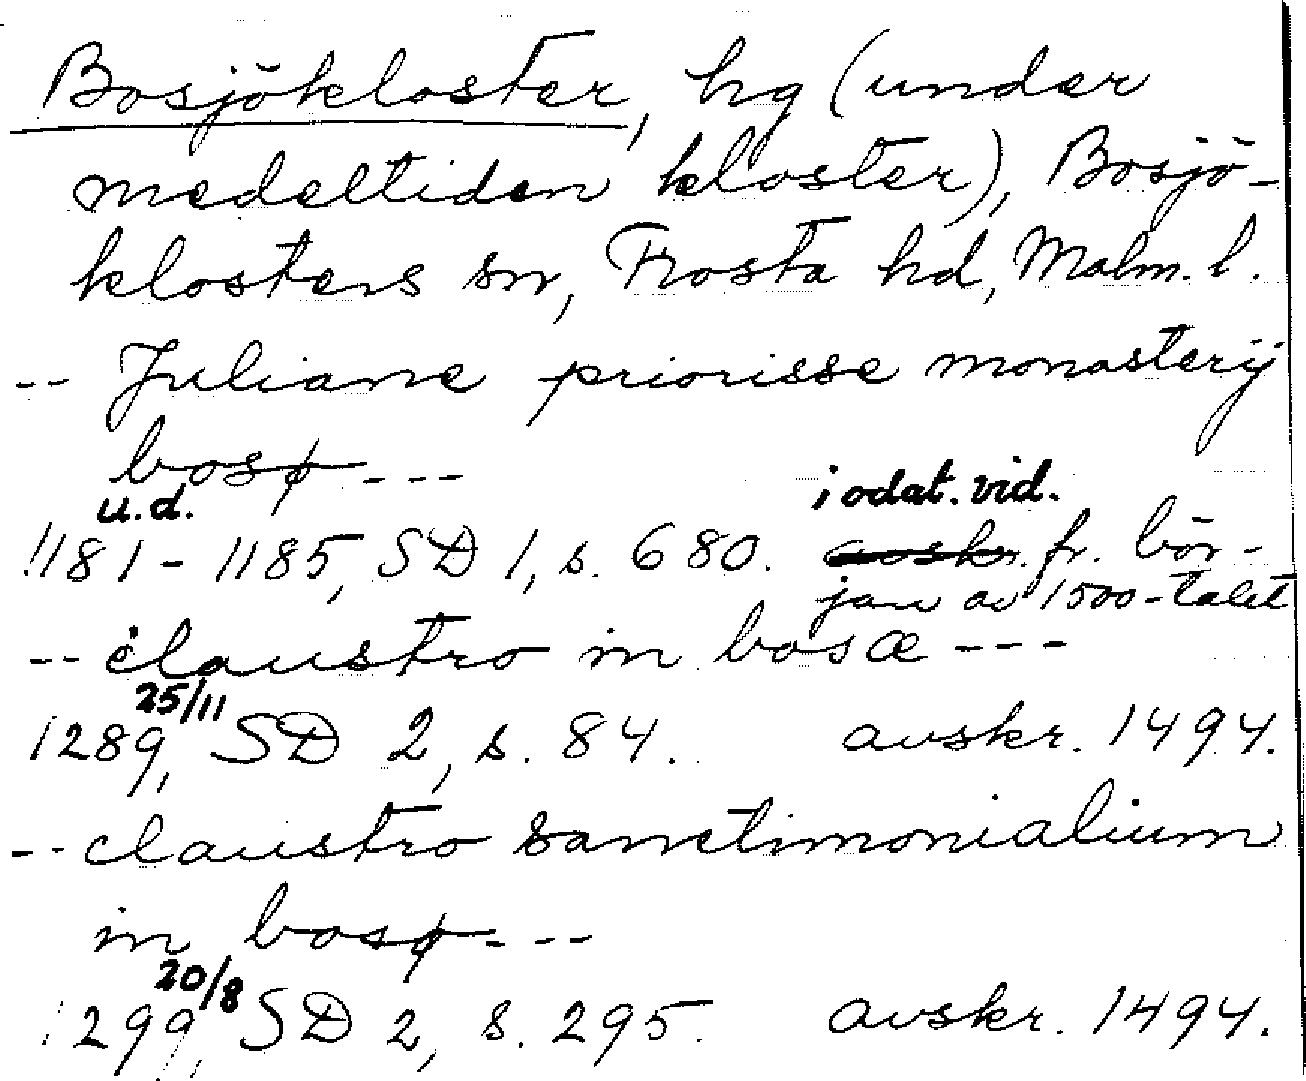 Bosjökloster, hg (under
medeltiden kloster), Bosjö-
klosters sn, Frosta hd, Malm. l.
-- Juliane priorisse monasterij
bosø ---
u.d. i odat. vid.
1181-1185, SD 1, s. 680. avskr. fr. bör-
jan av 1500-talet
-- claustro in bosœ ---
25/11
1289, SD 2, s. 84. avskr. 1494.
-- claustro sanctimonialium
in bosø ---
20/8
1299, SD 2, s. 295. avskr. 1494.